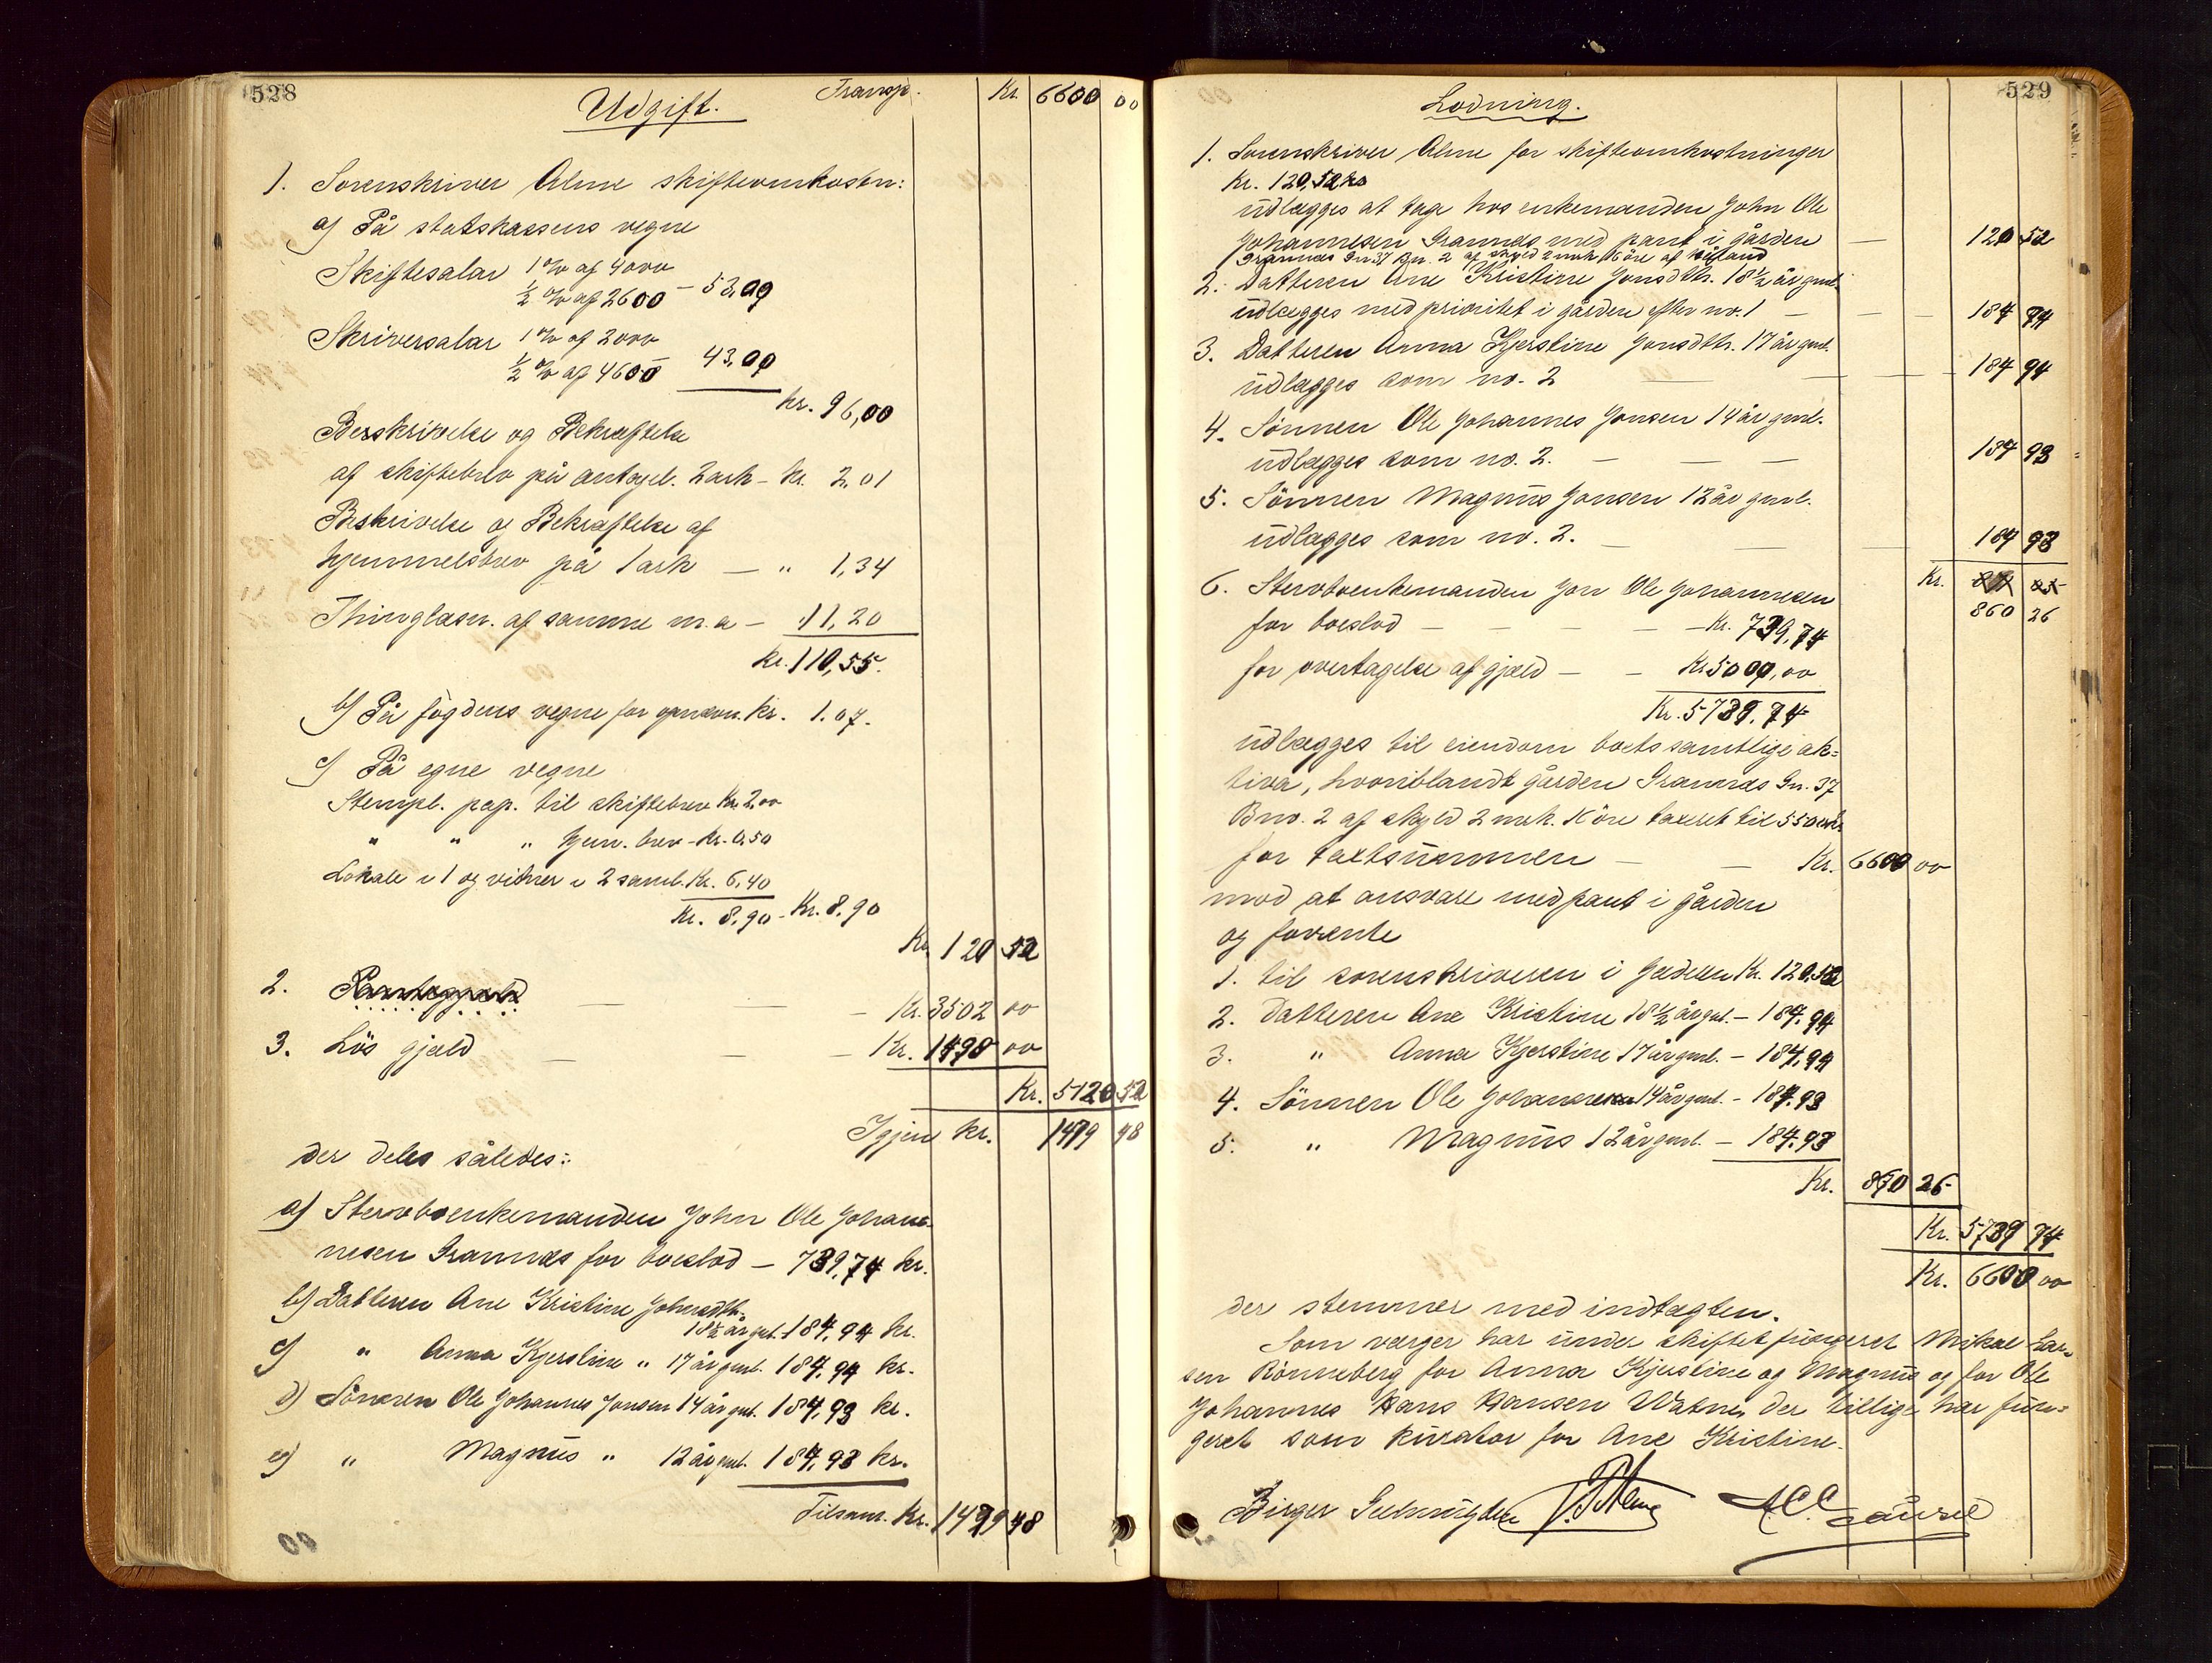 528
Udgift.
Transp. Kr. 6600 00
1. Sorenskriver Alme skifteomkostn:
a) På statskassens vegne
Skiftesalar 1 % af 4000
½ % af 2600 - 53,00
Skriversalar 1 % af 2000
½ % af 4600 43,00
kr. 96,00
Beskrivelse og Bekræftelse
af skiftebrev på antagel. 2 ark - kr. 2,01
Beskrivelse og Bekræftelse af
hjemmelsbrev på 1 ark — " 1,34
Thinglæsn. af samme m.a - 11,20
kr. 110,55.
b) På fogdens vegne for opnævn. kr. 1.07.
c) På egne vegne
Stempl. pap. til skiftebrev Kr. 2,00
" " " hjem. brev - Kr. 0,50
Lokale i 1 og vidner i 2 saml. Kr. 6,40
Kr. 8.90 - Kr. 8.90
Kr. 120 52
2. Pantegjæld — — Kr. 3502 00
3. Løs gjæld — — Kr. 1498 00
Kr. 5120 52
Igjen kr. 1479 48
der deles således:
a) Stervboenkemanden John Ole Johan-
nesen Grannæs for boeslod — 739,74 kr.
b) Datteren Ane Kristine Johnsdtr.
18½ år gl. 184,94 kr.
c) " Anna Kjerstine " 17 år gml. 184,94 kr.
d) Sønnen Ole Johannes Jonsen 14 år gml. 184,93 kr.
e) " Magnus " 12 år gml. 184,93 kr.
Tilsam. Kr. 1479 48
529
Lodning.
1. Sorenskriver Alme for skifteomkostninger
Kr. 120,52
udlægges at tage hos enkemanden John Ole
Johannesen Grannæs med pant i gården — 120 52
Grannæs Gn. 37 Bn. 2 af skyld 2 mrk 16 øre af
2. Datteren Ane Kristine Jonsdtr. 18½ år gml.
udlægges med prioritet i gården efter no. 1 — — — 184 94
3. Datteren Anna Kjerstine Jonsdtr. 17 år gml.
udlægges som no. 2 — — — 184 94
4. Sønnen Ole Johannes Jonsen 14 år gml.
udlægges som no. 2. — — — 184 93
5. Sønnen Magnus Jonsen 12 år gml.
udlægges som no. 2. — — — 184 93
Kr.
860 26
6. Stervboenkemanden Jon Ole Johannesen
for boeslod — — — — Kr. 739,74
for overtagelse af gjæld — — Kr. 5000,00
Kr. 5739,74
udlægges til eiendom boets samtlige ak-
tiva, hvoriblandt gården Grannæs Gn. 37
Bno. 2 af skyld 2 mrk. 16 øre taxeret til 5500 kr.
for taxtsummen — — Kr. 6600 00
mod at ansvare med pant i gården
og forrente
1. til sorenskriveren i Jæderen Kr. 120,52
2. Datteren Ane Kristine 18½ år gml. — 184,94
3. " Anna Kjerstine 17 år gml. — 184,94
4. Sønnen Ole Johannes 14 år gml. — 184,93
5. " Magnus 12 år gml. — 184,93
Kr. 860 26
Kr. 5739 74
Kr. 6600 00
der stemmer med indtægten.
Som værger har under skiftet fungeret Mikal Lar-
sen Rønneberg for Anna Kjerstine og Magnus og for Ole
Johannes Hans Hansen Watne, der tillige har fun-
geret som kurator for Ane Kristine.
Birger